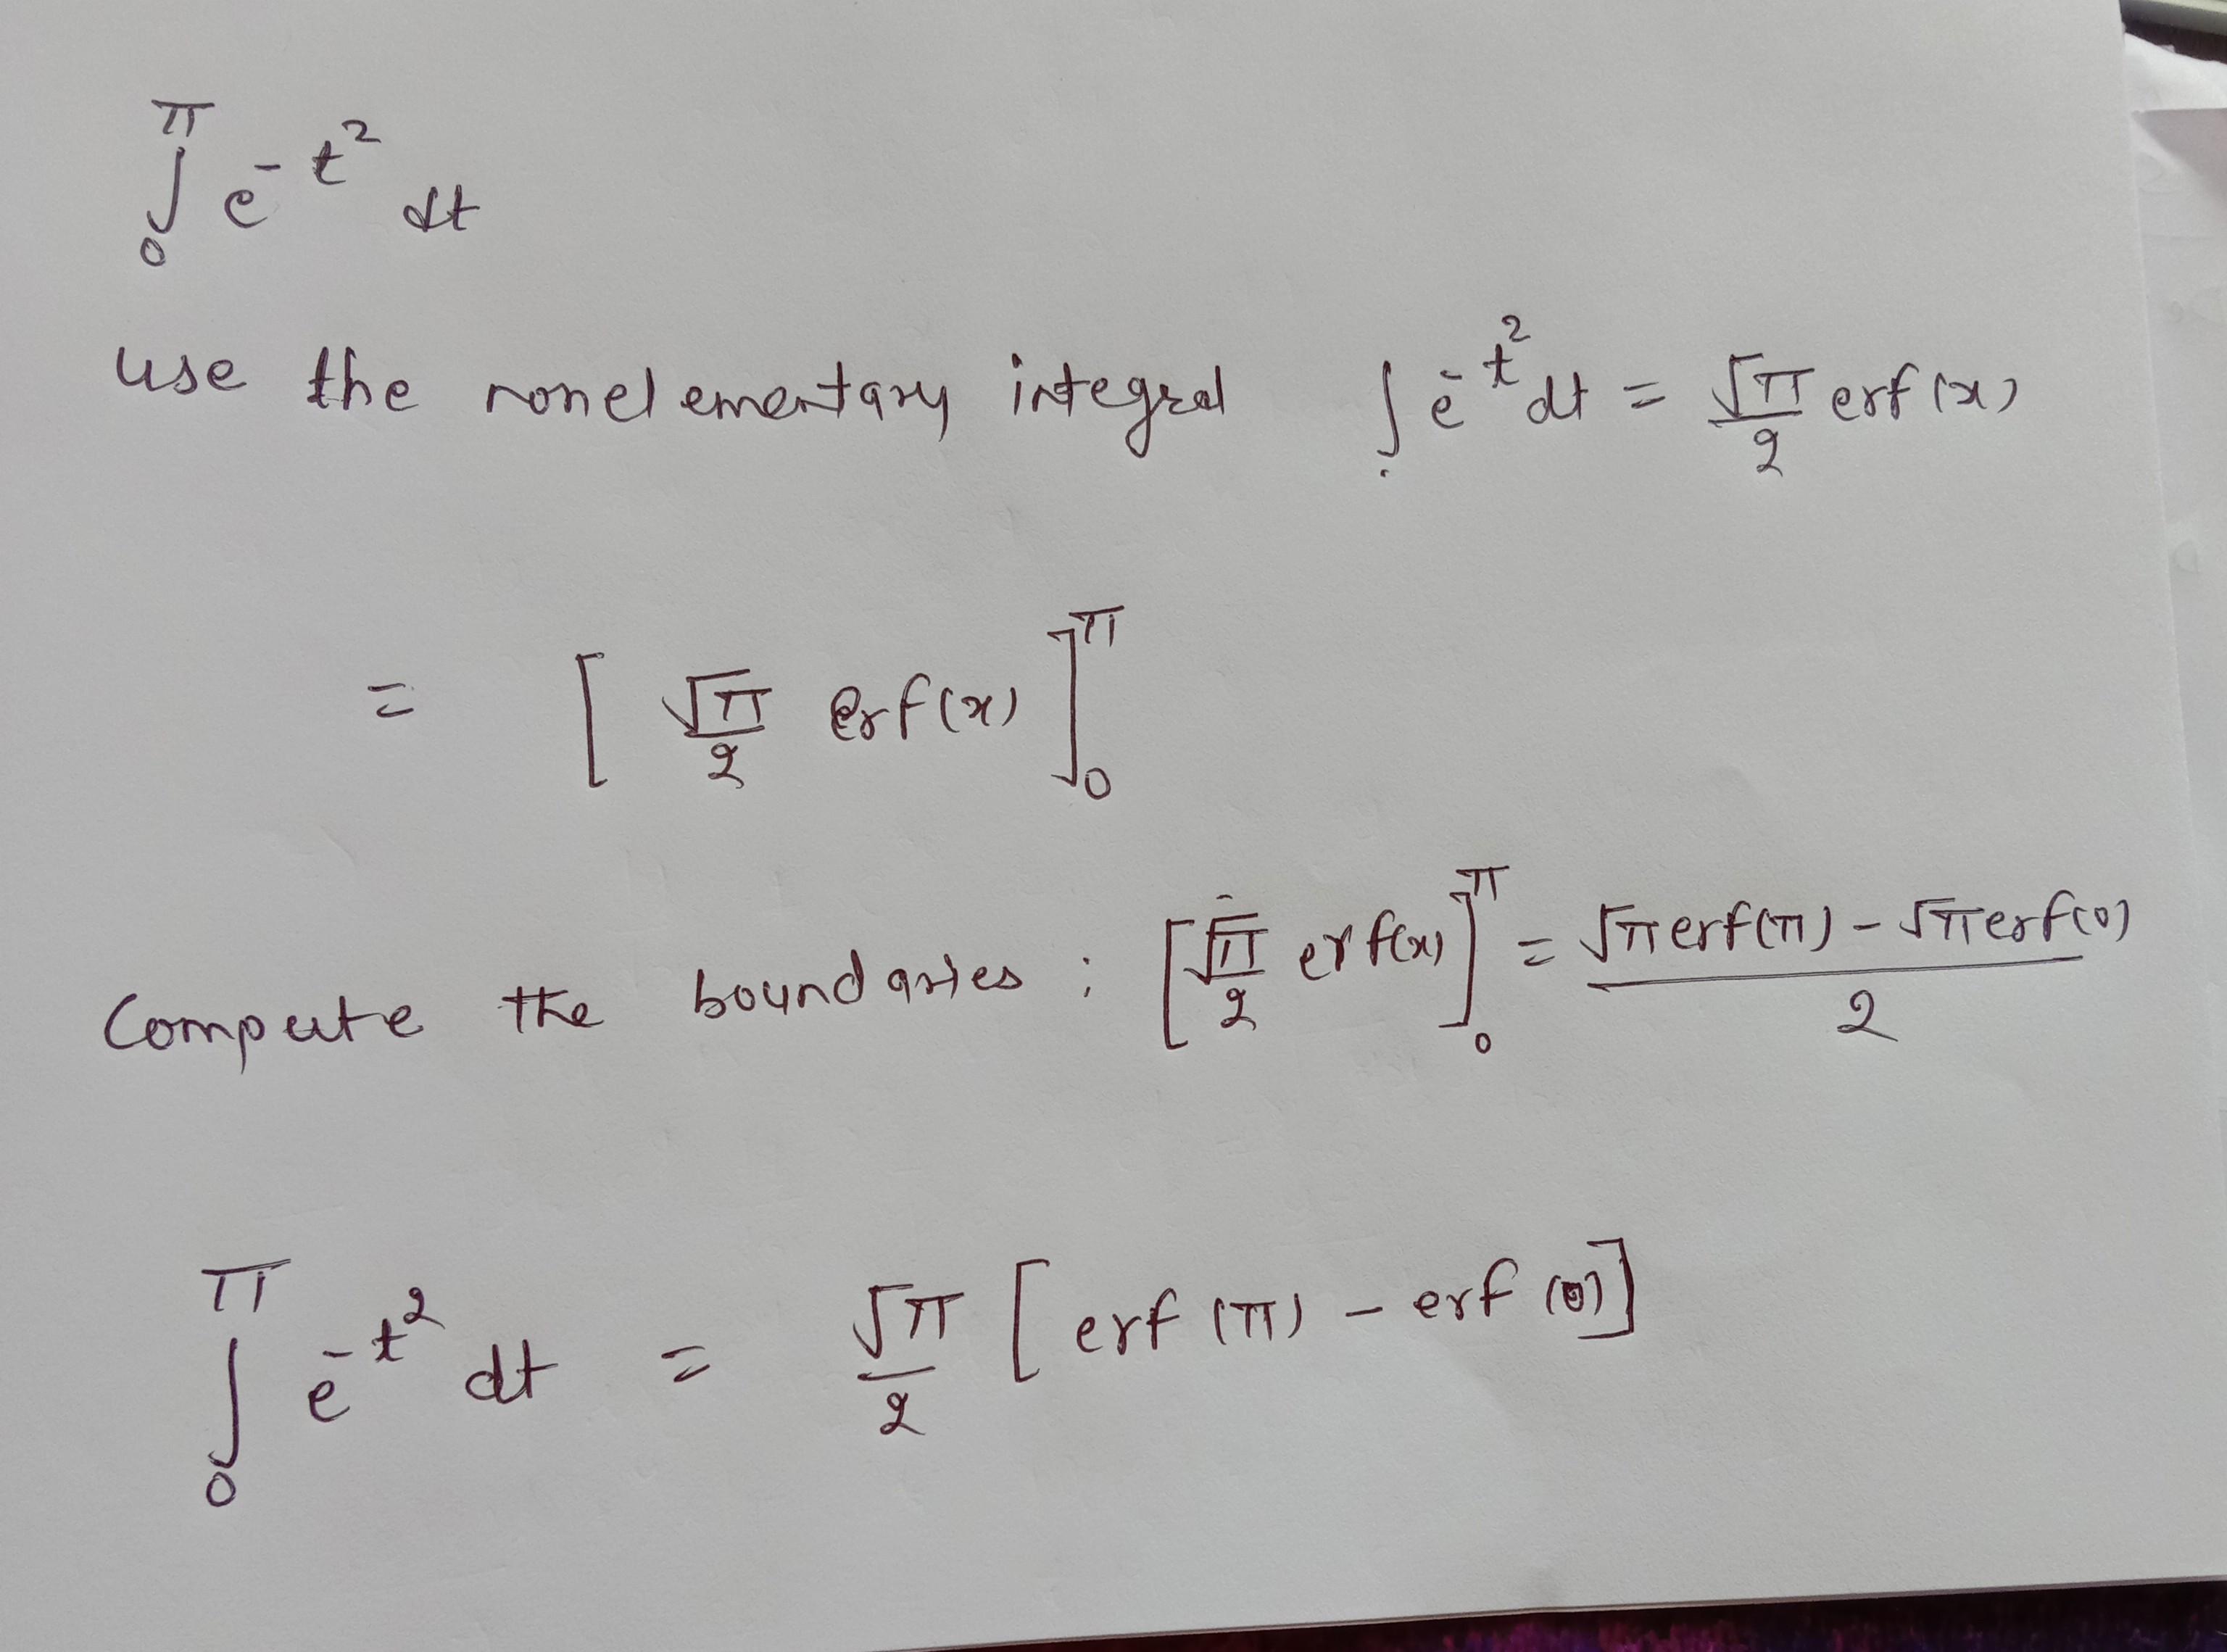 ∫₀^π e^{-t²} dt
use the nonelementary integral ∫ e^{-t²} dt = √π/2 erf(x)
= [√π/2 erf(x)]₀^π
Compute the boundaries : [√π/2 erf(x)]₀^π = (√π erf(π) - √π erf(0))/2
∫₀^π e^{-t²} dt = √π/2 [erf(π) - erf(0)]